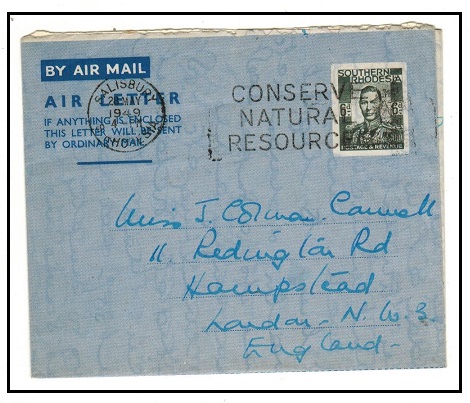 BY AIR MAIL
AIR LETTER
IF ANYTHING IS ENCLOSED
THIS LETTER WILL BE SENT
BY ORDINARY MAIL.
SALISBURY
1949
CONSERV
NATURA
RESOURC
SOUTHERN
RHODESIA
6D 6D
POSTAGE & REVENUE
Miss J. Colman Cannell
11. Redington Rd
Hampstead
London. N.W.3.
England.